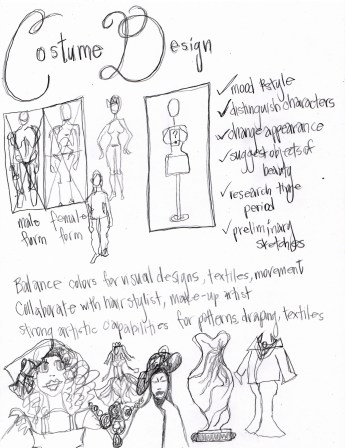 Costume Design
✓ mood & style
✓ distinguish characters
✓ change appearance
✓ suggest objects of
beauty
✓ research time
period
✓ preliminary
sketches
male
form
female
form
?
Balance colors for visual designs, textiles, movement
Collaborate with hair stylist, make-up artist
strong artistic capabilities for patterns, draping, textiles